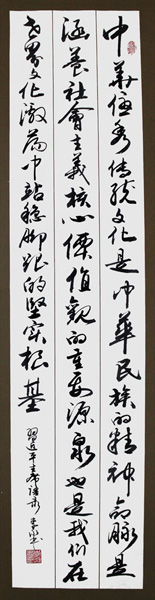 中華優秀傳統文化是中華民族的精神命脈是
涵養社會主義核心價值觀的重要源泉也是我們在
世界文化激蕩中站穩腳跟的堅實根基
習近平主席語录